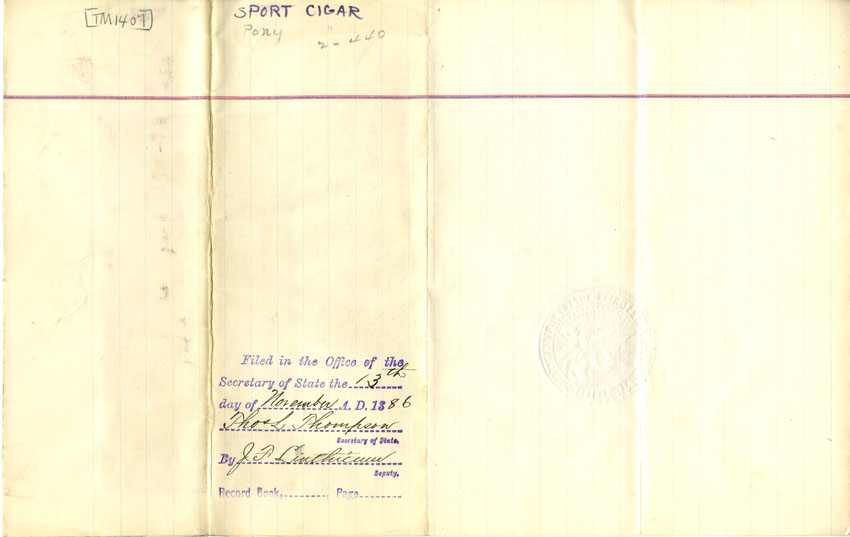 [TM1407]
SPORT CIGAR
Pony
2-440
Filed in the Office of the
Secretary of State the 13th
day of November A. D. 1886
Thos L. Thompson
Secretary of State.
By J. F. Linthicum
Deputy.
Record Book, , Page